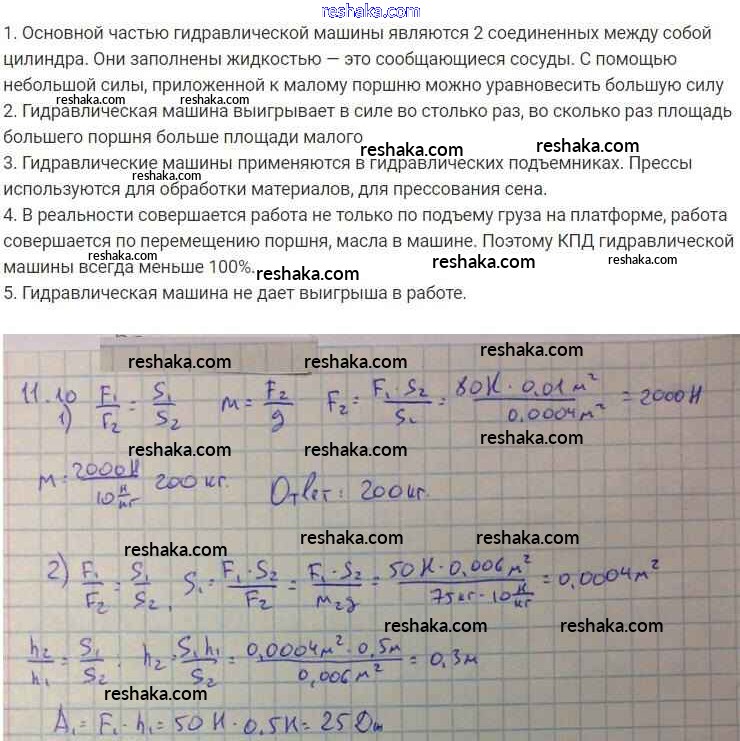 reshaka.com
1. Основной частью гидравлической машины являются 2 соединенных между собой
цилиндра. Они заполнены жидкостью — это сообщающиеся сосуды. С помощью
небольшой силы, приложенной к малому поршню можно уравновесить большую силу
reshaka.com reshaka.com
2. Гидравлическая машина выигрывает в силе во столько раз, во сколько раз площадь
большего поршня больше площади малого
reshaka.com reshaka.com
3. Гидравлические машины применяются в гидравлических подъемниках. Прессы
reshaka.com
используются для обработки материалов, для прессования сена.
4. В реальности совершается работа не только по подъему груза на платформе, работа
reshaka.com
совершается по перемещению поршня, масла в машине. Поэтому КПД гидравлической
машины всегда меньше 100%.
reshaka.com reshaka.com
5. Гидравлическая машина не дает выигрыша в работе.
reshaka.com reshaka.com
11.10
1) F₁/F₂ = S₁/S₂ m = F₂/g F₂ = F₁·S₂/S₁ = 80Н · 0,01 м²/0,0004м² = 2000Н
reshaka.com reshaka.com
m = 2000Н/10 Н/кг 200 кг. Ответ: 200кг.
reshaka.com
reshaka.com reshaka.com
2) F₁/F₂ = S₁/S₂, S₁ = F₁·S₂/F₂ = F₁·S₂/m₂g = 50Н·0,006м²/75кг·10 Н/кг = 0,0004м²
reshaka.com reshaka.com
h₂/h₁ = S₁/S₂ ; h₂ = S₁h₁/S₂ = 0,0004м²·0,5м/0,006м² = 0,3м
reshaka.com
A₁ = F₁·h₁ = 50Н·0,5Н = 25Дж
reshaka.com reshaka.com